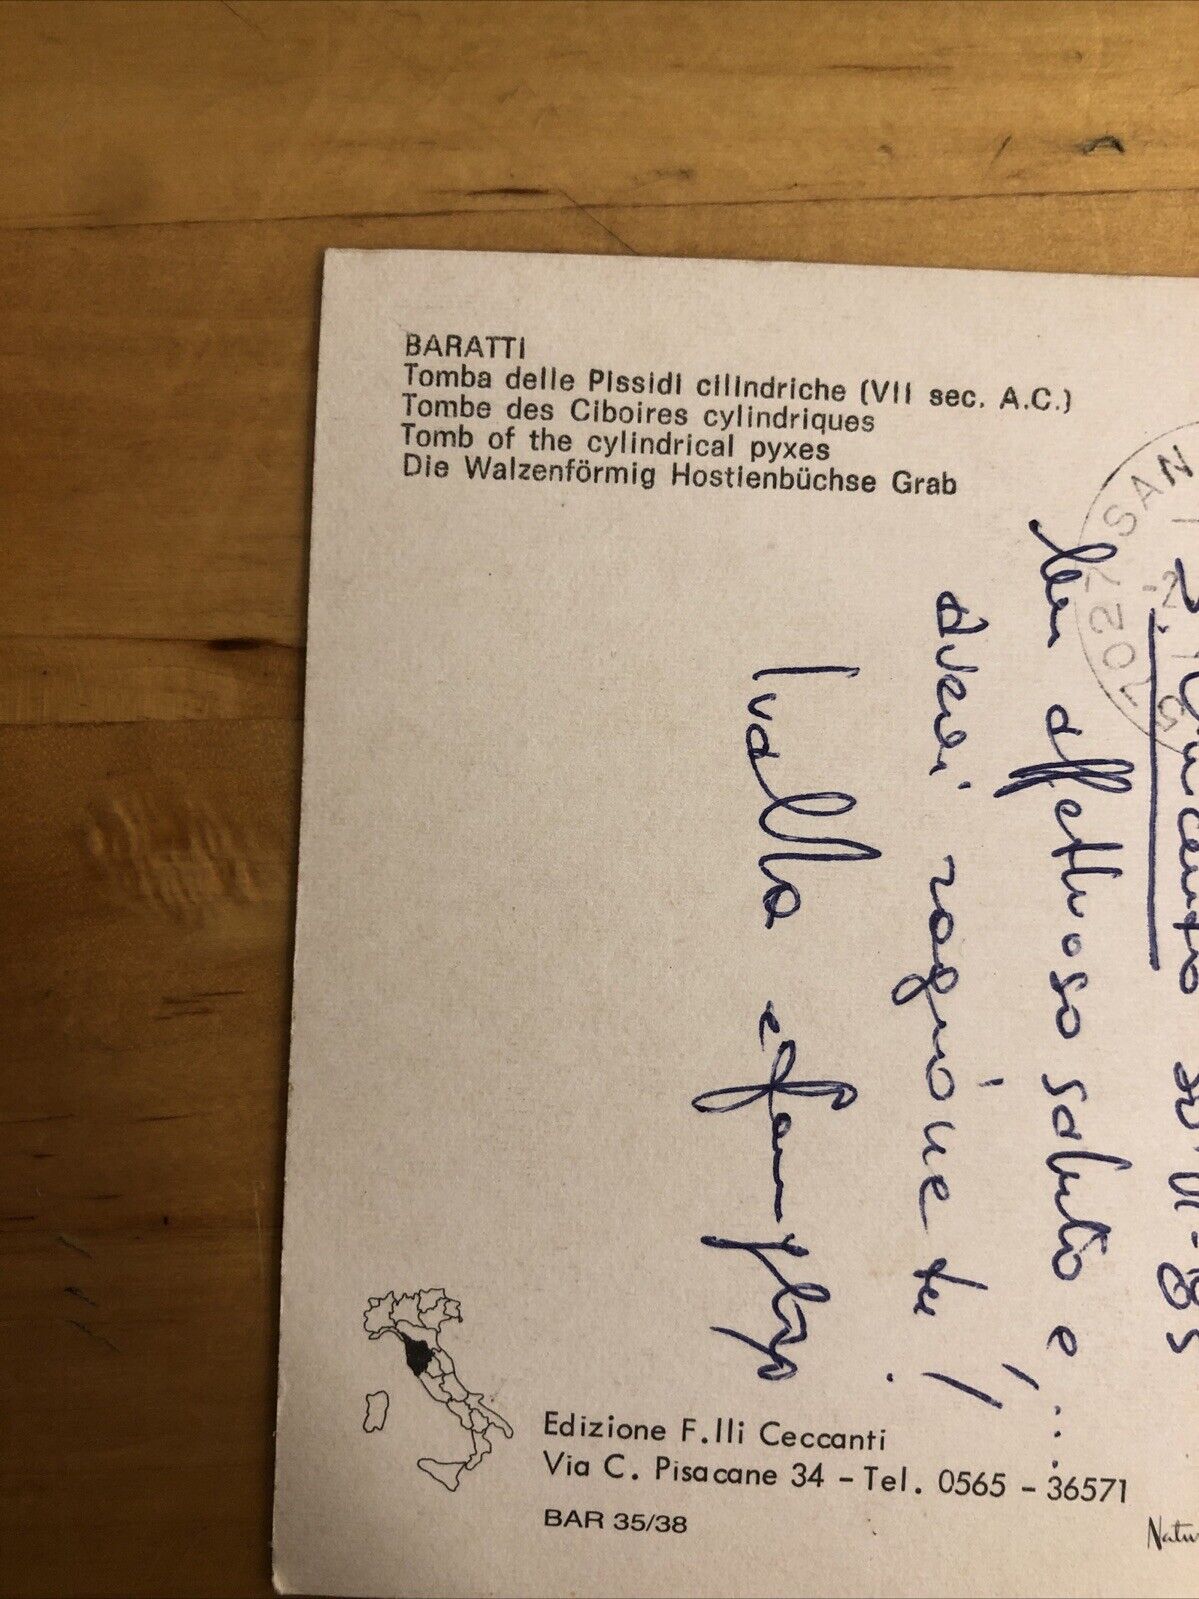 BARATTI
Tomba delle Pissidi cilindriche (VII sec. A.C.)
Tombe des Ciboires cylindriques
Tomb of the cylindrical pyxes
Die Walzenförmig Hostienbüchse Grab
57027 SAN
-2
S. Vincenzo
affettuoso saluto e ...
avevi ragione tu!
Ivalla e famiglia
Edizione F.lli Ceccanti
Via C. Pisacane 34 - Tel. 0565 - 36571
BAR 35/38
Natu